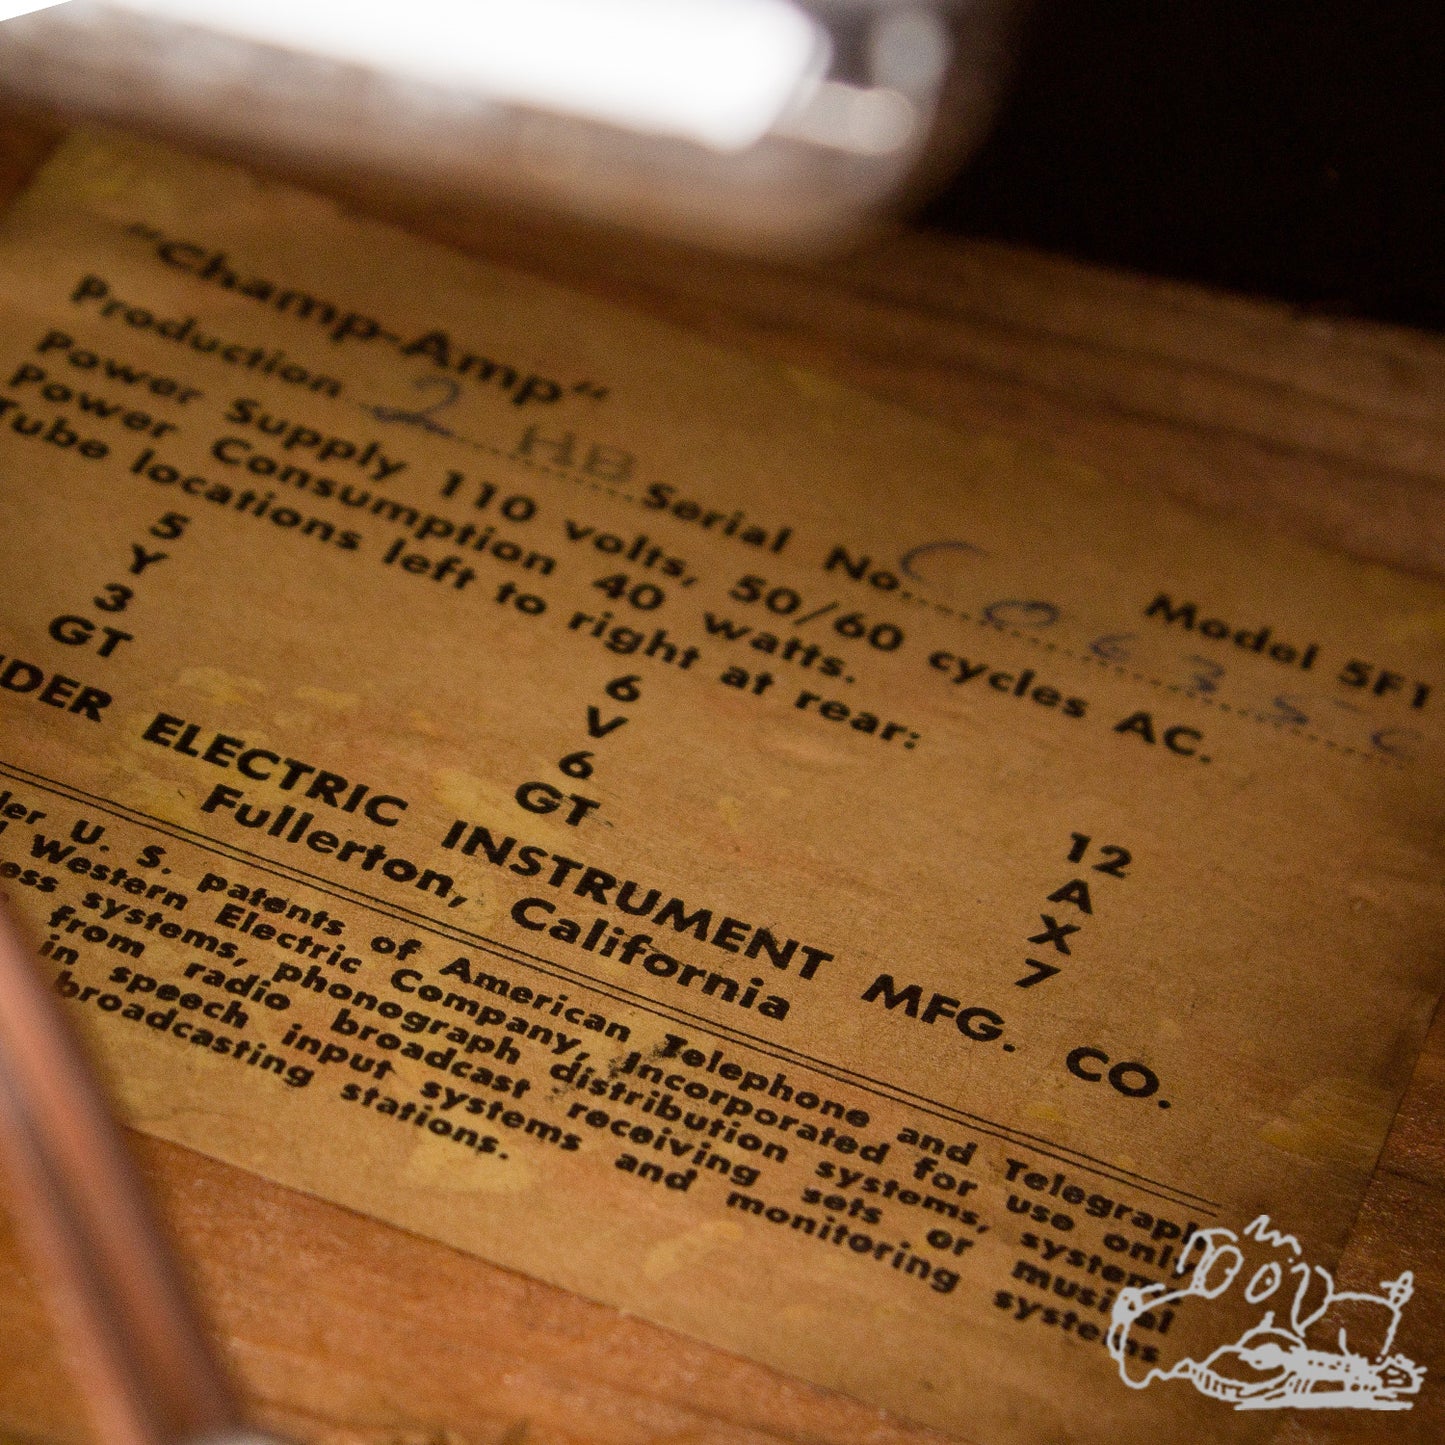 "Champ-Amp" Model 5F1
Production 2 HB Serial No. C
Power Supply 110 volts, 50/60 cycles AC.
Power Consumption 40 watts.
Tube locations left to right at rear:
5 6 12
Y V A
3 6 X
GT GT 7
NDER ELECTRIC INSTRUMENT MFG. CO.
Fullerton, California
der U. S. patents of American Telephone and Telegraph
d Western Electric Company, Incorporated for use only
ess systems, phonograph distribution systems, systems
from radio broadcast receiving sets or musical
in speech input systems and monitoring systems
broadcasting stations.